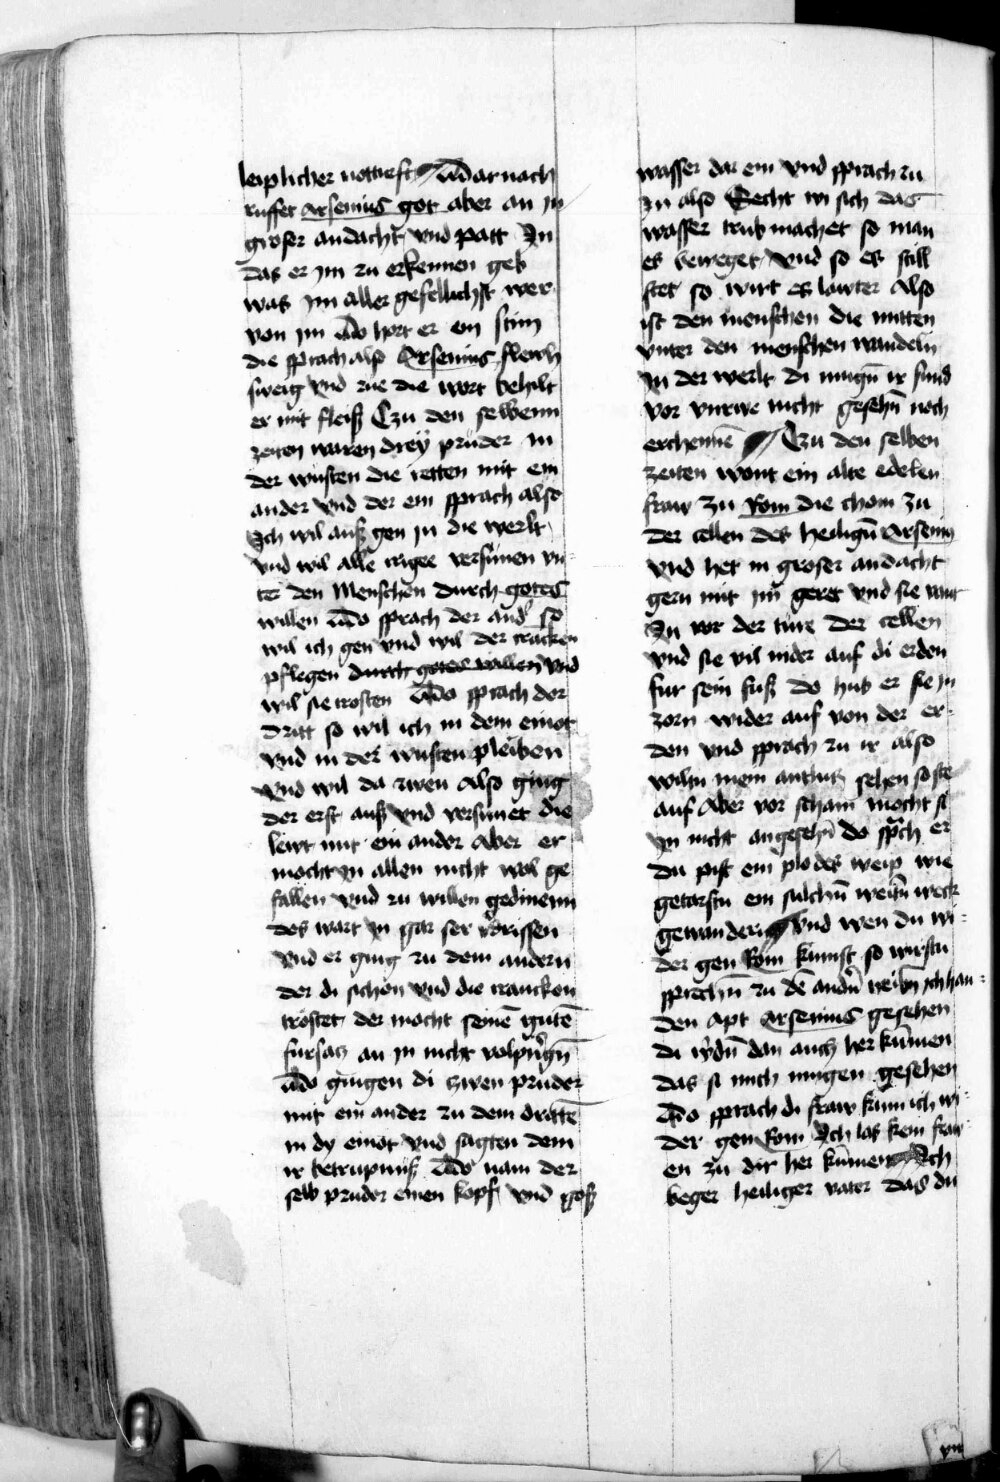 leiplicher notturft Und dar nach
ruffet Arsenius got aber an in
groser andacht und patt In
das er im zu erkennen geb
was im aller gefellichst wer
von im Do hort er ein stim
die sprach also Arsenius flewh
sweig und rue die wort behilt
er mit fleiß Czu den selbenn
zeiten waren drey pruder in
der wusten die retten mit ein
ander und der ein sprach also
Ich wil auß gen in die werlt
und wil alle krige versunen un
ter den Menschen durch gotes
willen Do sprach der and' so
wil ich gen und wil der cracken
pflegen durch gotes willen und
wil sie trosten Do sprach der
dritt so wil ich in dem einot
und in der wusten pleiben
und wil da rwen Also ging
der erst auß und versunet die
lewt mit ein ander Aber er
mocht in allen nicht wol ge
fallen und zu willen gedinenn
des wart in gar ser v'drissen
und er ging zu dem andern
der di sichen und die crancken
tröstet der mocht seinē gutē
fursatz an in nicht volpri'gn̄
Do gingen di zwen pruder
mit ein ander zu dem drittē
in dy einot und sagten dem
ir betrupnuß Do nam der
selb pruder einen kopf und goß
wasser dar ein und sprach zu
In also Secht wi sich das
wasser trub machet so man
es beweget und so es still
stet so wirt es lawter Also
ist den menschen die mitten
unter den menschen wandeln
in der werlt di mugn̄ ir sund
vor unrwe nicht gesehn̄ noch
erchennē Czu den selben
zeiten wont ein alte edelen
fraw zu Rom die chom zu
der cellen des heilign̄ Arseny
und het in groser andacht
gern mit im geret und sie vant
In vor der türe der cellen
und sie vil nider auf di erden
fur sein fuß do hub er sie in
zorn wider auf von der er-
den und sprach zu ir also
wiltu mein antlutz sehen so ste
auf Aber vor scham mocht si
in nicht angesehn̄ do sprach er
du pist ein plodes weip wie
getarstu ein sulchn̄ weitn̄ weck
gewandern und wen du wi-
der gen Rom kumst so wirstu
sprechn̄ zu dē andn̄ weibn̄ ich han-
den Apt Arsenius gesehen
di w'dn̄ dan auch her kumen
das si mich mugen gesehen
Do sprach di fraw kum ich wi-
der gen Rom Ich las kein fraw
en zu dir her kumen Ich
beger heiliger vater das du